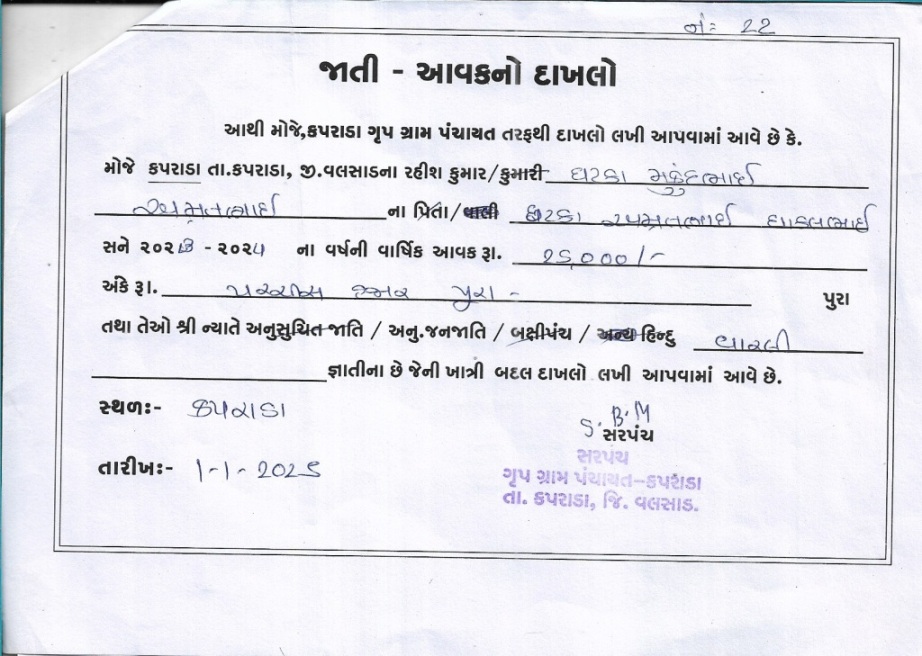 નં: 22
જાતી - આવકનો દાખલો
આથી મોજે,કપરાડા ગૃપ ગ્રામ પંચાયત તરફથી દાખલો લખી આપવામાં આવે છે કે.
મોજે કપરાડા તા.કપરાડા, જી.વલસાડના રહીશ કુમાર/કુમારી મુકુંદભાઈ
ના પિતા/વાલી
સને ૨૦૨ - ૨૦૨ ના વર્ષની વાર્ષિક આવક રૂા. 25,000/-
અંકે રૂા. પચ્ચીસ હજાર પુરા - પુરા
તથા તેઓ શ્રી ન્યાતે અનુસુચિત જાતિ / અનુ.જનજાતિ / બક્ષીપંચ / અન્ય હિન્દુ વારલી
જ્ઞાતીના છે જેની ખાત્રી બદલ દાખલો લખી આપવામાં આવે છે.
સ્થળઃ- કપરાડા
S. B. M
સરપંચ
તારીખઃ- 1-1-2025
સરપંચ
ગૃપ ગ્રામ પંચાયત-કપરાડા
તા. કપરાડા, જિ. વલસાડ.